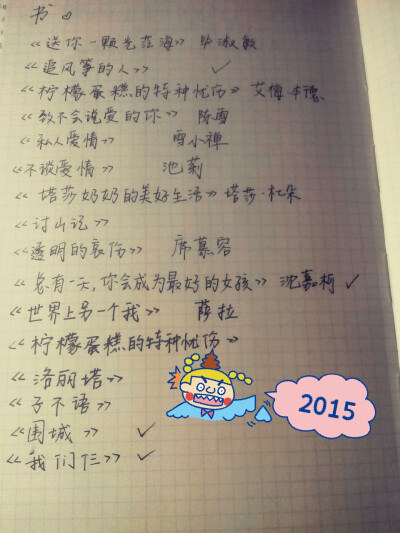 书目
《送你一颗光芒海》 毕淑敏
《追风筝的人》 ✓
《柠檬蛋糕的特种忧伤》 艾梅·本德
《致不会说爱的你》 陈雪
《私人爱情》 雪小禅
《不谈爱情》 池莉
《塔莎奶奶的美好生活》 塔莎·杜朵
《讨山记》
《透明的哀伤》 席慕容
《总有一天,你会成为最好的女孩》 沈嘉柯 ✓
《世界上另一个我》 萨拉
《柠檬蛋糕的特种忧伤》
《洛丽塔》
《子不语》
《围城》 ✓
《我们仨》 ✓
2015